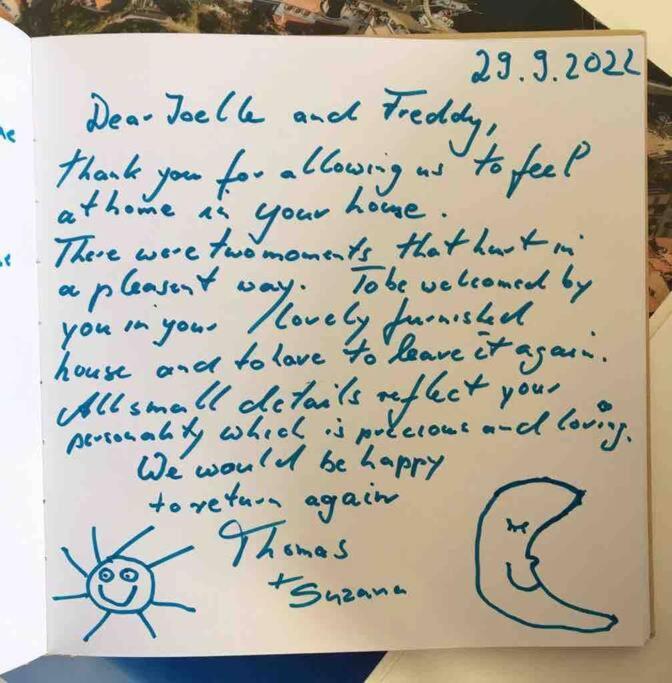 29.9.2022
Dear Joelle and Freddy,
thank you for allowing us to feel
at home in your house.
There were two moments that hurt in
a pleasent way. To be welcomed by
you in your lovely furnished
house and to have to leave it again.
All small details reflect your
personality which is precious and loving.
We would be happy
to return again
Thomas
+ Suzana